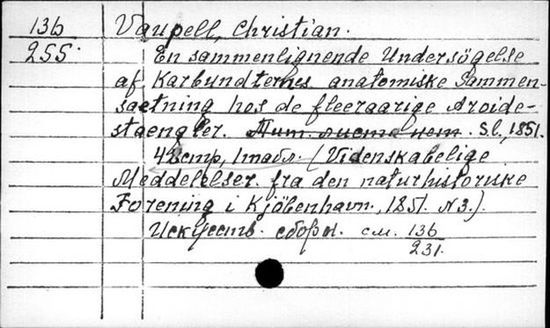 136 Vaupell, Christian.
255. En sammenlignende Undersögelse
af Karbundternes anatomiske Sammen-
saetning hos de fleeraarige Aroide-
staengler. Тит. листа нет. S.l., 1851.
42 стр, 1 табл. (Videnskabelige
Meddelelser fra den naturhistoriske
Forening i Kjöbenhavn, 1851. N3.).
Искусств. сборн. см. 136
231.